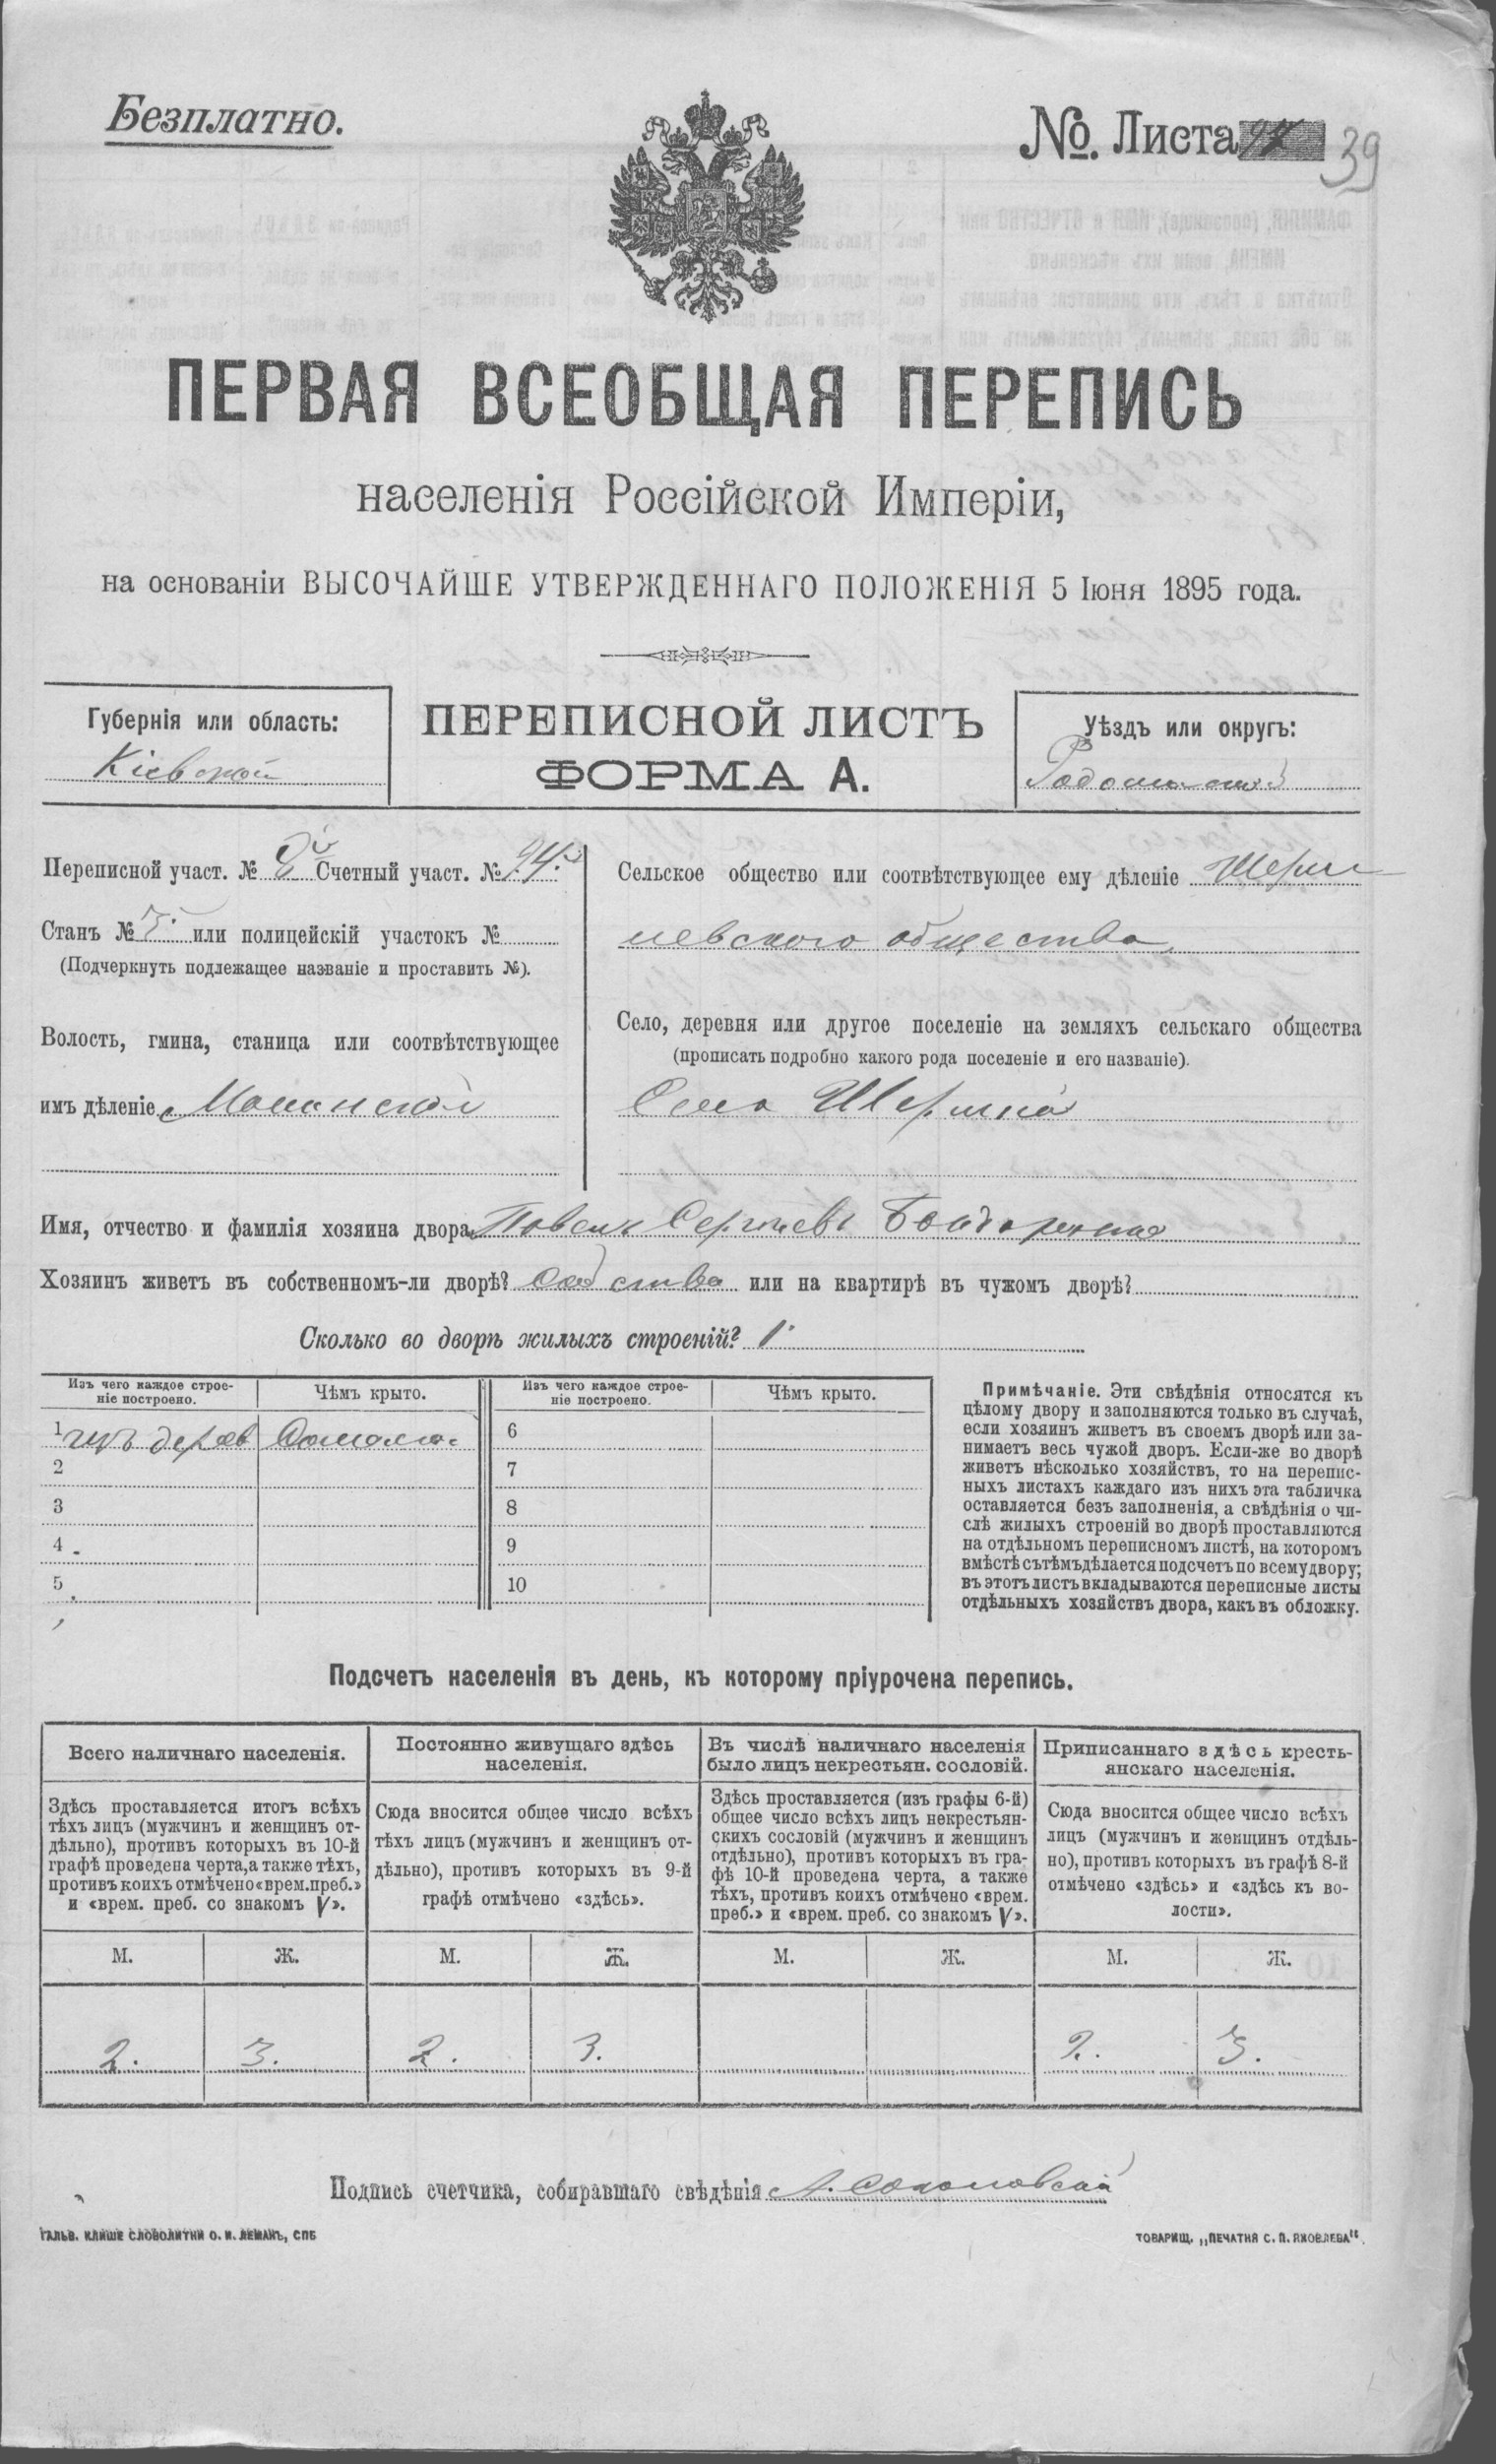 Безплатно.
№. Листа 39
ПЕРВАЯ ВСЕОБЩАЯ ПЕРЕПИСЬ
населенія Россійской Имперіи,
на основаніи ВЫСОЧАЙШЕ УТВЕРЖДЕННАГО ПОЛОЖЕНІЯ 5 Іюня 1895 года.
Губернія или область:
Кіевской
ПЕРЕПИСНОЙ ЛИСТЪ
ФОРМА А.
Уѣздъ или округъ:
Переписной участ. № 2й Счетный участ. № 24.
Станъ № 3. или полицейскій участокъ №
(Подчеркнуть подлежащее названіе и проставить №).
Волость, гмина, станица или соотвѣтствующее
имъ дѣленіе
Сельское общество или соотвѣтствующее ему дѣленіе Шерм
невского общества
Село, деревня или другое поселеніе на земляхъ сельскаго общества
(прописать подробно какого рода поселеніе и его названіе).
Село
Имя, отчество и фамилія хозяина двора Павелъ Сергѣевъ Бондаренко
Хозяинъ живетъ въ собственномъ-ли дворѣ? или на квартирѣ въ чужомъ дворѣ?
Сколько во дворѣ жилыхъ строеній? 1
Изъ чего каждое строе-
ніе построено.
Чѣмъ крыто.
Изъ чего каждое строе-
ніе построено.
Чѣмъ крыто.
1 изъ дерев Соломою
2
3
4
5
6
7
8
9
10
Примѣчаніе. Эти свѣдѣнія относятся къ
цѣлому двору и заполняются только въ случаѣ,
если хозяинъ живетъ въ своемъ дворѣ или за-
нимаетъ весь чужой дворъ. Если-же во дворѣ
живетъ нѣсколько хозяйствъ, то на перепис-
ныхъ листахъ каждаго изъ нихъ эта табличка
оставляется безъ заполненія, а свѣдѣнія о чи-
слѣ жилыхъ строеній во дворѣ проставляются
на отдѣльномъ переписномъ листѣ, на которомъ
вмѣстѣ сътѣмъ дѣлается подсчетъ по всему двору;
въ этотъ листъ вкладываются переписные листы
отдѣльныхъ хозяйствъ двора, какъ въ обложку.
Подсчетъ населенія въ день, къ которому пріурочена перепись.
Всего наличнаго населенія.
Здѣсь проставляется итогъ всѣхъ
тѣхъ лицъ (мужчинъ и женщинъ от-
дѣльно), противъ которыхъ въ 10-й
графѣ проведена черта, а также тѣхъ,
противъ коихъ отмѣчено «врем. преб.»
и «врем. преб. со знакомъ V».
Постоянно живущаго здѣсь
населенія.
Сюда вносится общее число всѣхъ
тѣхъ лицъ (мужчинъ и женщинъ от-
дѣльно), противъ которыхъ въ 9-й
графѣ отмѣчено «здѣсь».
Въ числѣ наличнаго населенія
было лицъ некрестьян. сословій.
Здѣсь проставляется (изъ графы 6-й)
общее число всѣхъ лицъ некрестьян-
скихъ сословій (мужчинъ и женщинъ
отдѣльно), противъ которыхъ въ гра-
фѣ 10-й проведена черта, а также
тѣхъ, противъ коихъ отмѣчено «врем.
преб.» и «врем. преб. со знакомъ V».
Приписаннаго здѣсь кресть-
янскаго населенія.
Сюда вносится общее число всѣхъ
лицъ (мужчинъ и женщинъ отдѣль-
но), противъ которыхъ въ графѣ 8-й
отмѣчено «здѣсь» и «здѣсь къ во-
лости».
М. Ж. М. Ж. М. Ж. М. Ж.
2. 3. 2. 3. 2. 3.
Подпись счетчика, собиравшаго свѣдѣнія А. Соколовскій
ГАЛЬВ. КЛИШЕ СЛОВОЛИТНИ О. И. ЛЕМАНЪ, СПБ
ТОВАРИЩ. „ПЕЧАТНЯ С. П. ЯКОВЛЕВА“.